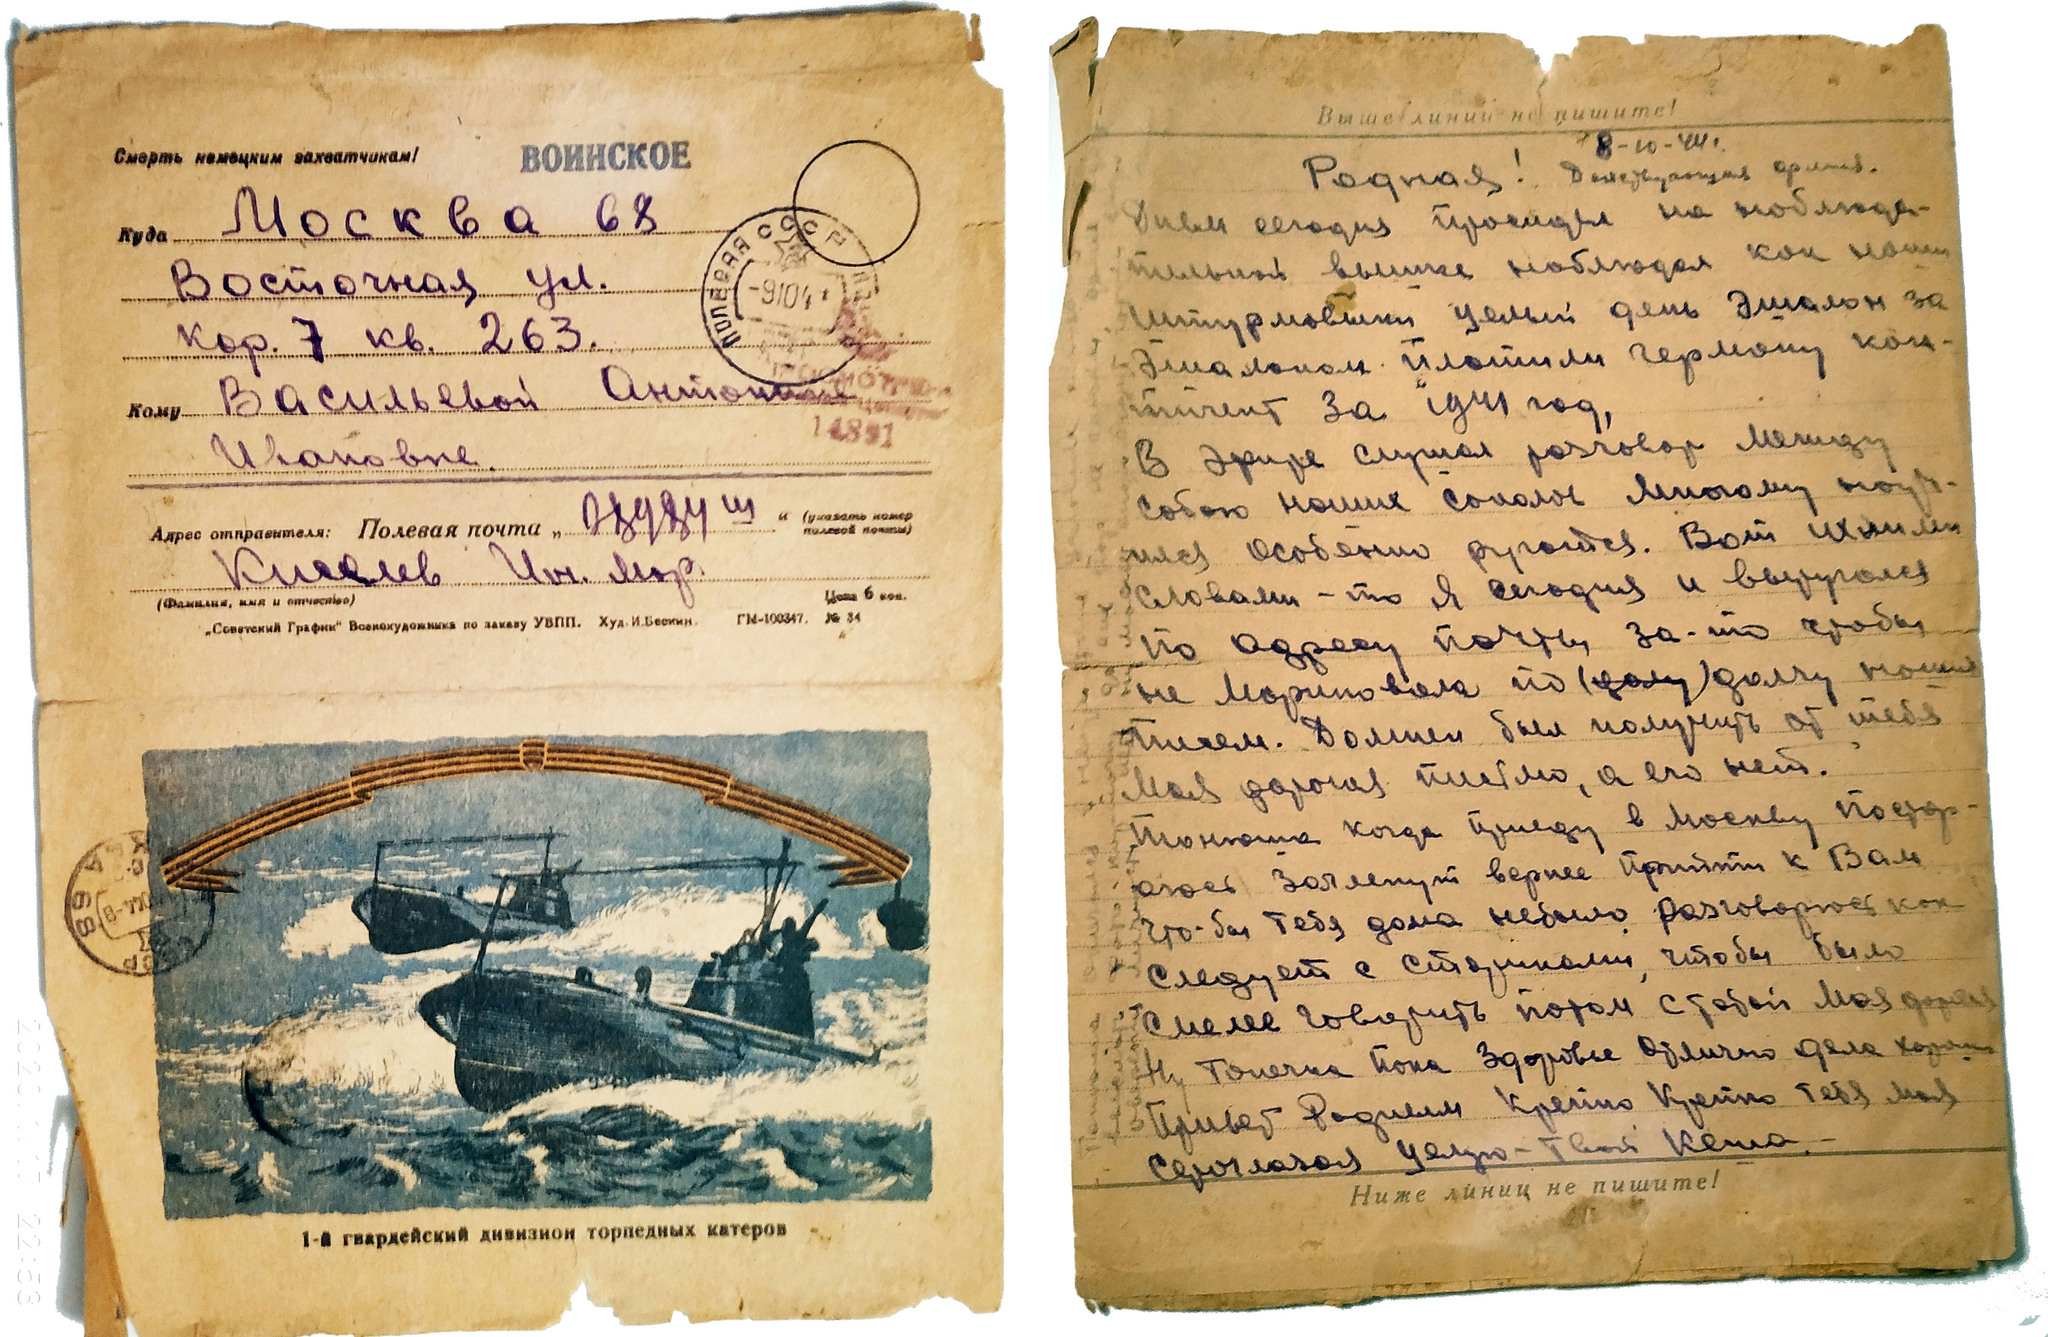 Смерть немецким захватчикам!
ВОИНСКОЕ
Куда Москва 68
Восточная ул.
кор. 7 кв. 263.
Кому Васильевой Антонине
Ивановне.
ПОЛЕВАЯ СССР
-91044
ПРОСМОТРЕНО
14891
Адрес отправителя: Полевая почта „ и (указать номер полевой почты)
Киселев Ин. Мар.
(Фамилия, имя и отчество)
Цена 6 коп.
„Советский График“ Всекохудожника по заказу УВПП. Худ. И. Бескин. ГМ-100347. № 34
1-й гвардейский дивизион торпедных катеров
Выше линий не пишите!
8-10-44г.
Родная! Действующая армия.
Днем сегодня просидел на наблюда-
тельной вышке наблюдал как наши
штурмовики целый день эшалон за
эшалоном платили герману кон-
тигент за 1941 год,
В эфире слушал разговор между
собою наших соколов многому науч-
ился особенно ругатся. Вот ихними
словами-то я сегодня и выругался
по адресу почты за-то чтобы
не мариновала по (далу) долгу наших
писем. Должен был получить от тебя
моя дорогая письмо, а его нет.
Тонюша когда приеду в Москву постар-
аюсь заглянут вернее прийти к Вам
что-бы тебя дома небыло, разговорюсь как
следует с стариками, чтобы было
смелее говорить потом с тобой моя дорогая
Ну Тонечка пока здоровье отлично дела хорошо
Привет Родным Крепко Крепко тебя моя
сероглазая целую-твой Кеша.-
Ниже линий не пишите!